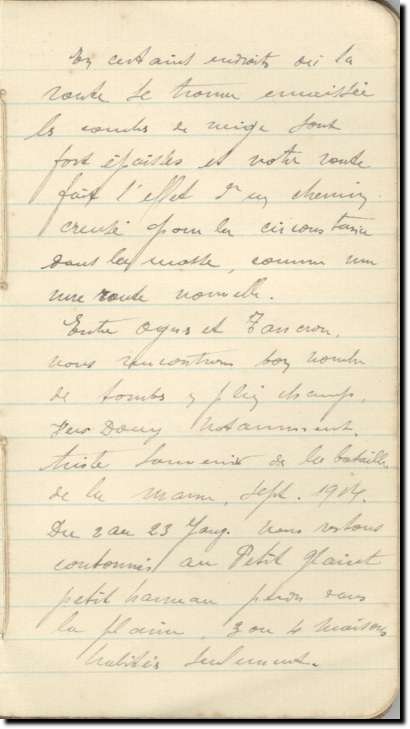 En certains endroits où la
route se trouve encaissée
les couches de neige sont
fort épaisses et notre route
fait l'effet d'un chemin
creusé pour la circonstance
dans la masse, comme une
route nouvelle.
Entre et
nous rencontrons bon nombre
de tombes en plein champ,
vers notamment,
triste souvenir de la bataille
de la marne, Sept. 1914.
Du 2 au 23 nous restons
cantonnés au Petit
petit hameau perdu dans
la plaine, 3 ou 4 maisons
habitées seulement.